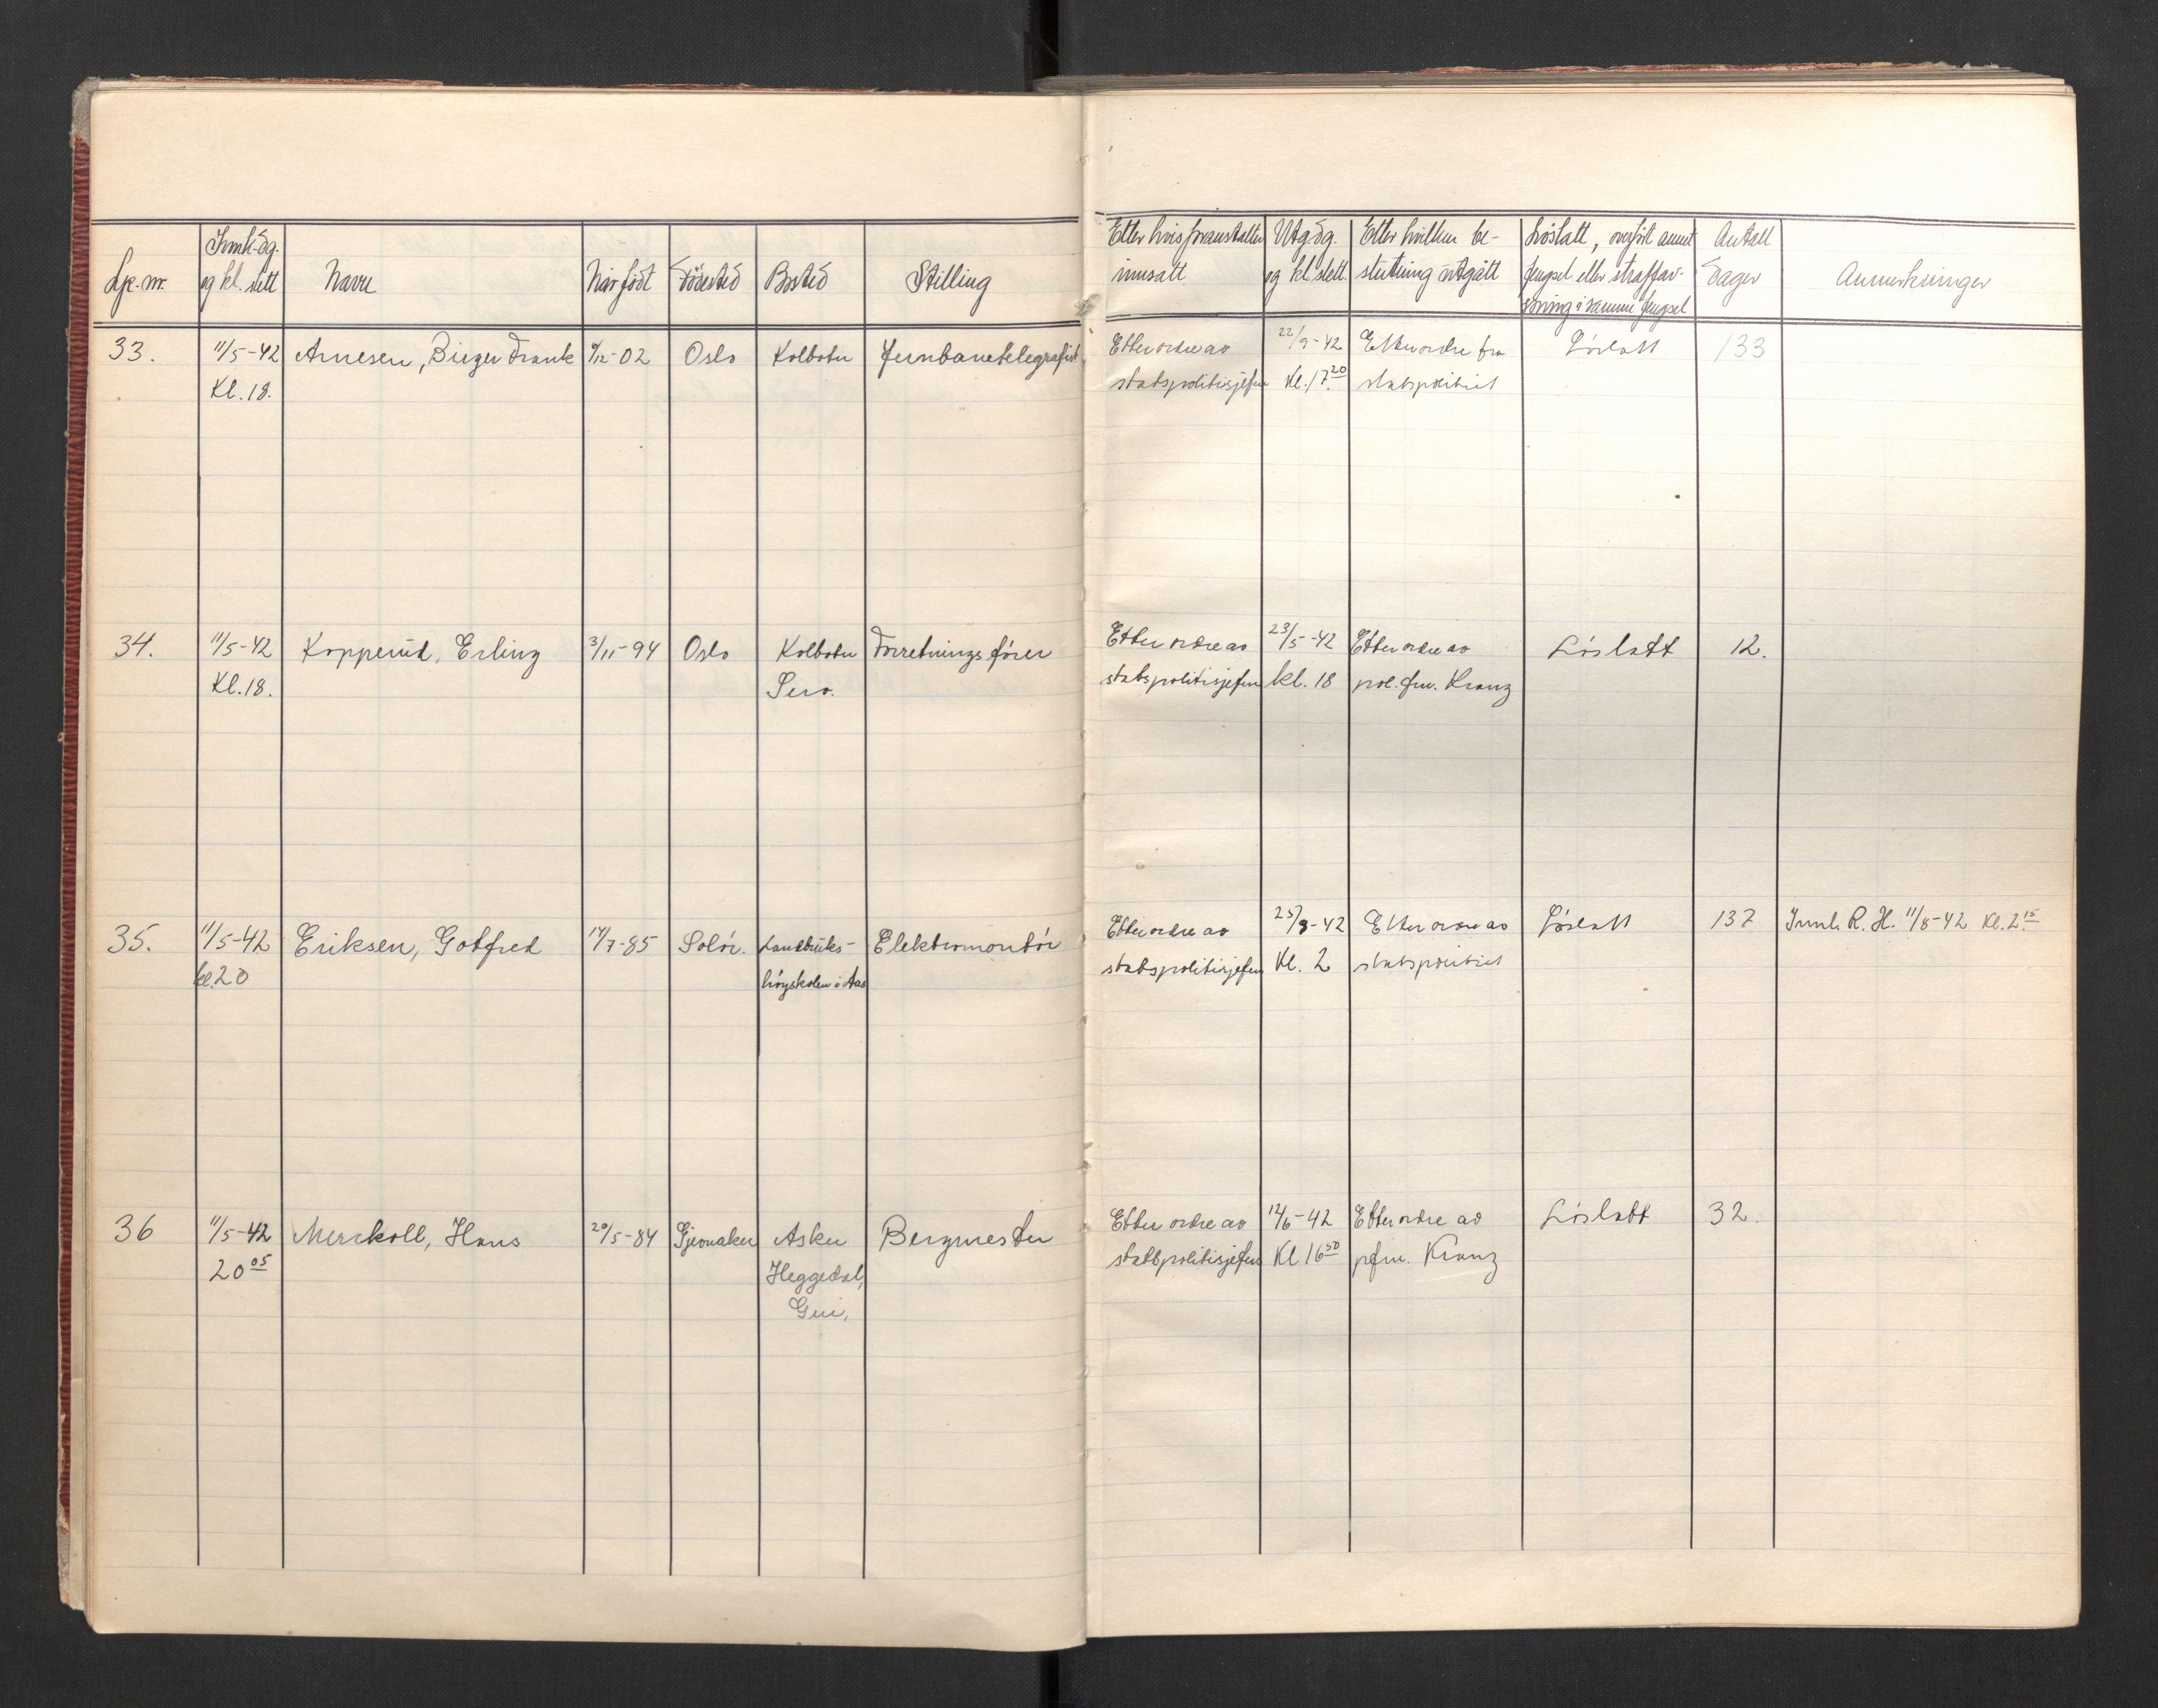 Lp. nr.
Innk. dg. og kl. slett
Navn
Når født
Födested
Bosted
Stilling
Etter hvis foranstalten innsatt
Utg dg. og kl slett.
Etter hvilken be-
slutning utgått
Löslatt, overfört annet
fengsel eller straffav-
soning i samme fengsel
Antall dager
Anmerkninger
33. 11/5-42 Arnesen, Birger Frank /12-02 Oslo Kolbotn Jernbanetelegrafist Etter ordre av 22/9-42 Etter ordre fra Löslatt 133
Kl. 18. statspolitisjefen Kl. 17.20 statspolitiet
34. 11/5-42 Kopperud, Erling 3/11-94 Oslo Kolbotn Forretningsförer Etter ordre av 23/5-42 Etter ordre av Löslatt 12.
Kl. 18. statspolitisjefen kl. 18 pol. fm. Kranz
35. 11/5-42 Eriksen, Gotfred 14/7-85 Solör. Landbruks- Elektromontör Etter ordre av 25/9-42 Etter ordre av Löslatt 137 Innl. R. H. 11/8-42 Kl. 2.15
kl. 20 högskolen i Aas statspolitisjefen Kl. 2 statspolitiet
36 11/5-42 Merckoll, Hans 20/5-84 Gjevnaker Asker Bergmester Etter ordre av 12/6-42 Etter ordre av Löslatt 32.
20 05 Heggedal, statspolitisjefen Kl 16 30 pfm. Kranz